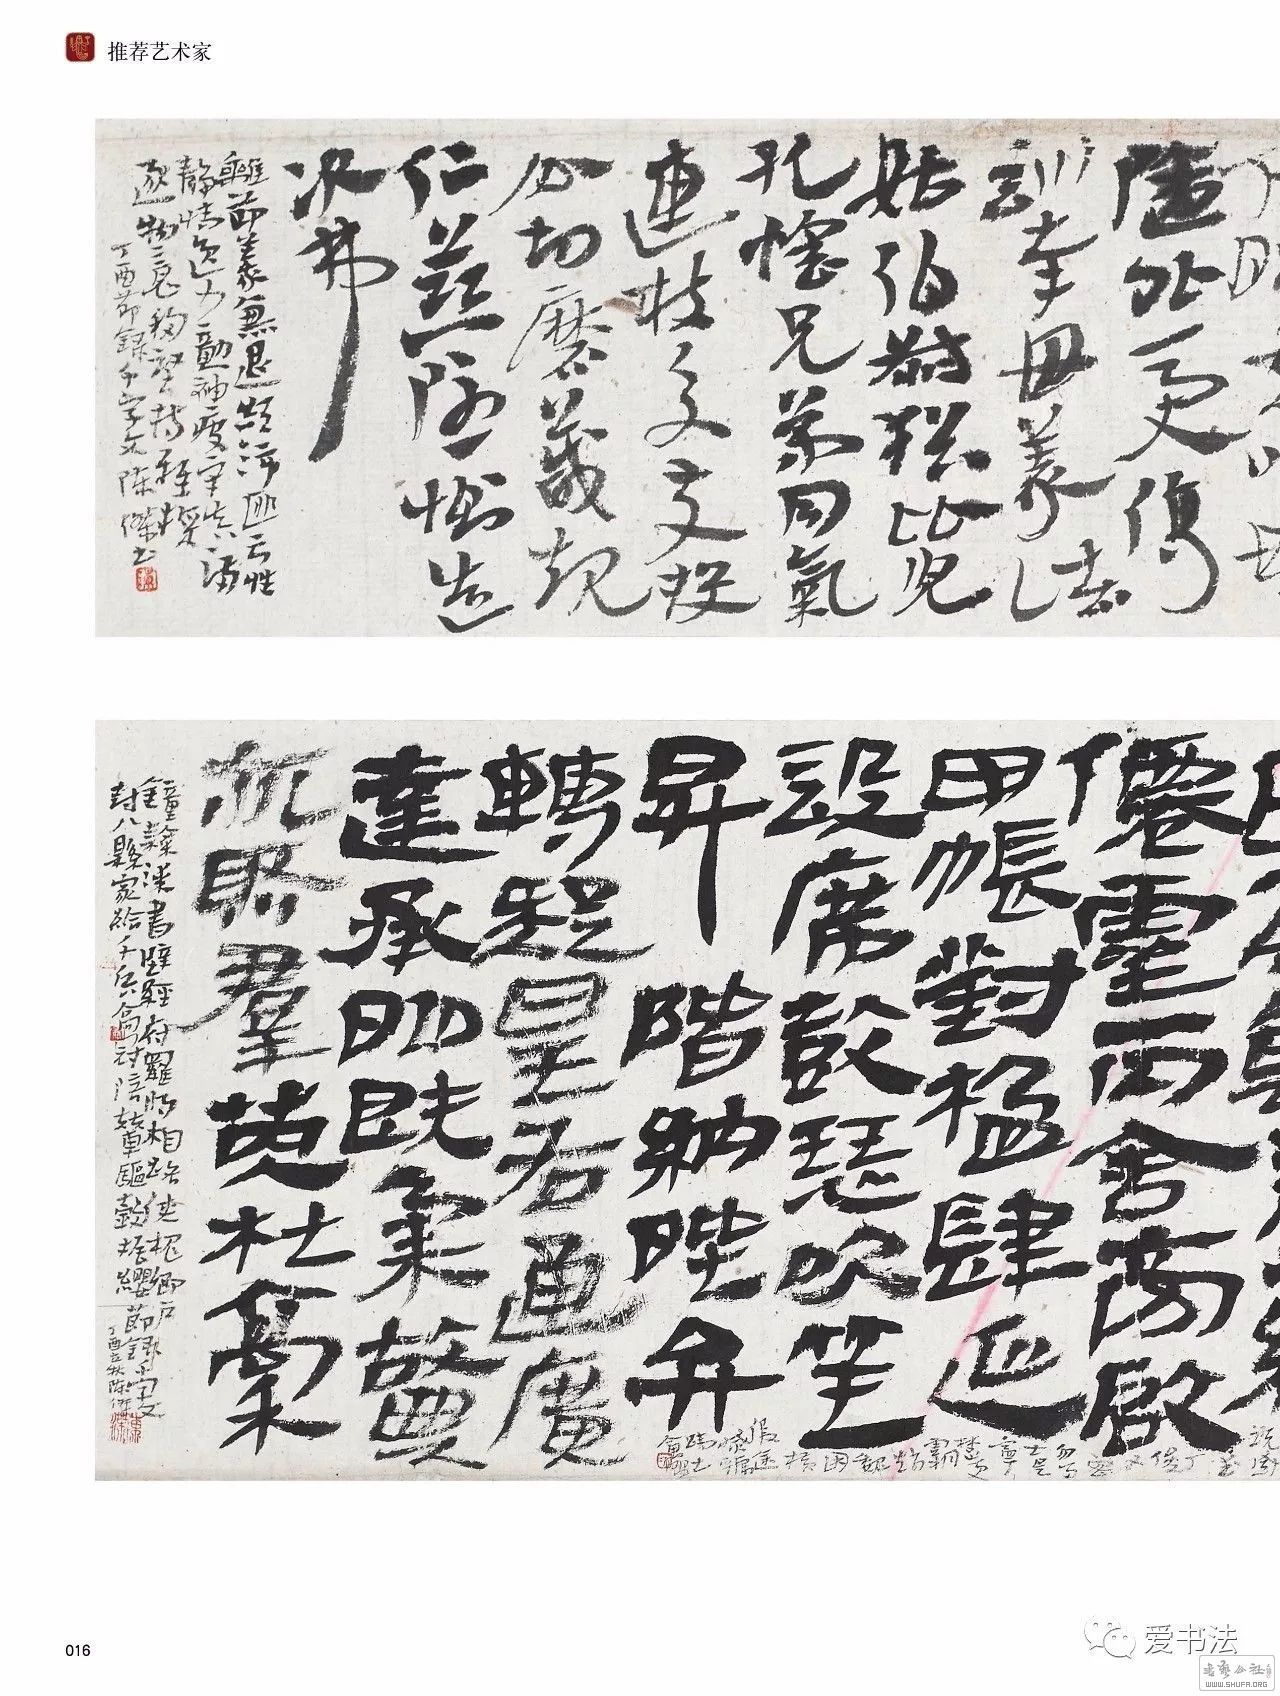 推荐艺术家
隨外受傅
訓奉母儀入诸
姑伯叔猶比兒
孔懷兄弟同氣
連枝交友投
分切磨箴規
仁慈隱惻造
次弗
離節義廉退顛沛匪虧性
靜情逸心動神疲守真志滿
逐物意移堅持雅操
丁酉節錄千字文陳傑書
仙靈丙舍傍啟
甲帳對楹肆筵
設席鼓瑟吹笙
昇階納陛弁
轉疑星右通廣
達承明既集墳
亦聚群英杜稾
鍾隸漆書壁經府羅將相路俠槐卿戶
封八縣家給千兵高冠陪輦驅轂振纓節錄千字文
丁酉秋陳傑
勿多
士寔
寧
楚更
霸
趙
魏
困
橫
假途
滅虢
踐土
會盟
016
爱书法
WWW.SHUFA.ORG